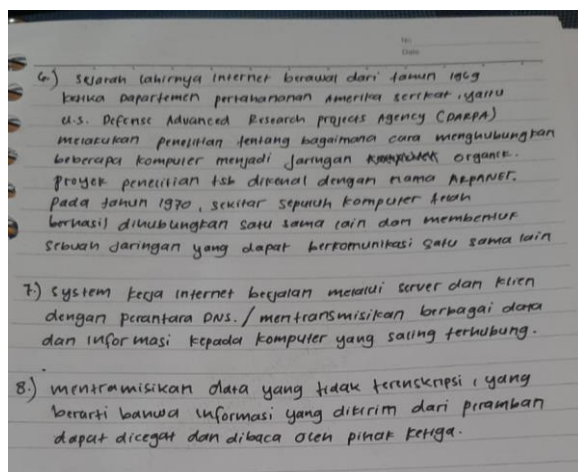 No.
Date
6.) Sejarah lahirnya internet berawal dari tahun 1969
ketika Dapartemen pertahananan Amerika serikat, yaitu
U.S. Defense Advanced Research projects Agency (DARPA)
melakukan penelitian tentang bagaimana cara menghubungkan
beberapa komputer menjadi jaringan organik.
proyek penelitian tsb dikenal dengan nama ARPANET.
pada tahun 1970, sekitar sepuluh komputer telah
berhasil dihubungkan satu sama lain dan membentuk
sebuah jaringan yang dapat berkomunikasi satu sama lain
7.) System kerja internet berjalan melalui server dan klien
dengan perantara DNS. / mentransmisikan berbagai data
dan informasi kepada komputer yang saling terhubung.
8.) mentramisikan data yang tidak terenskripsi, yang
berarti bahwa informasi yang dikirim dari peramban
dapat dicegat dan dibaca oleh pihak ketiga.